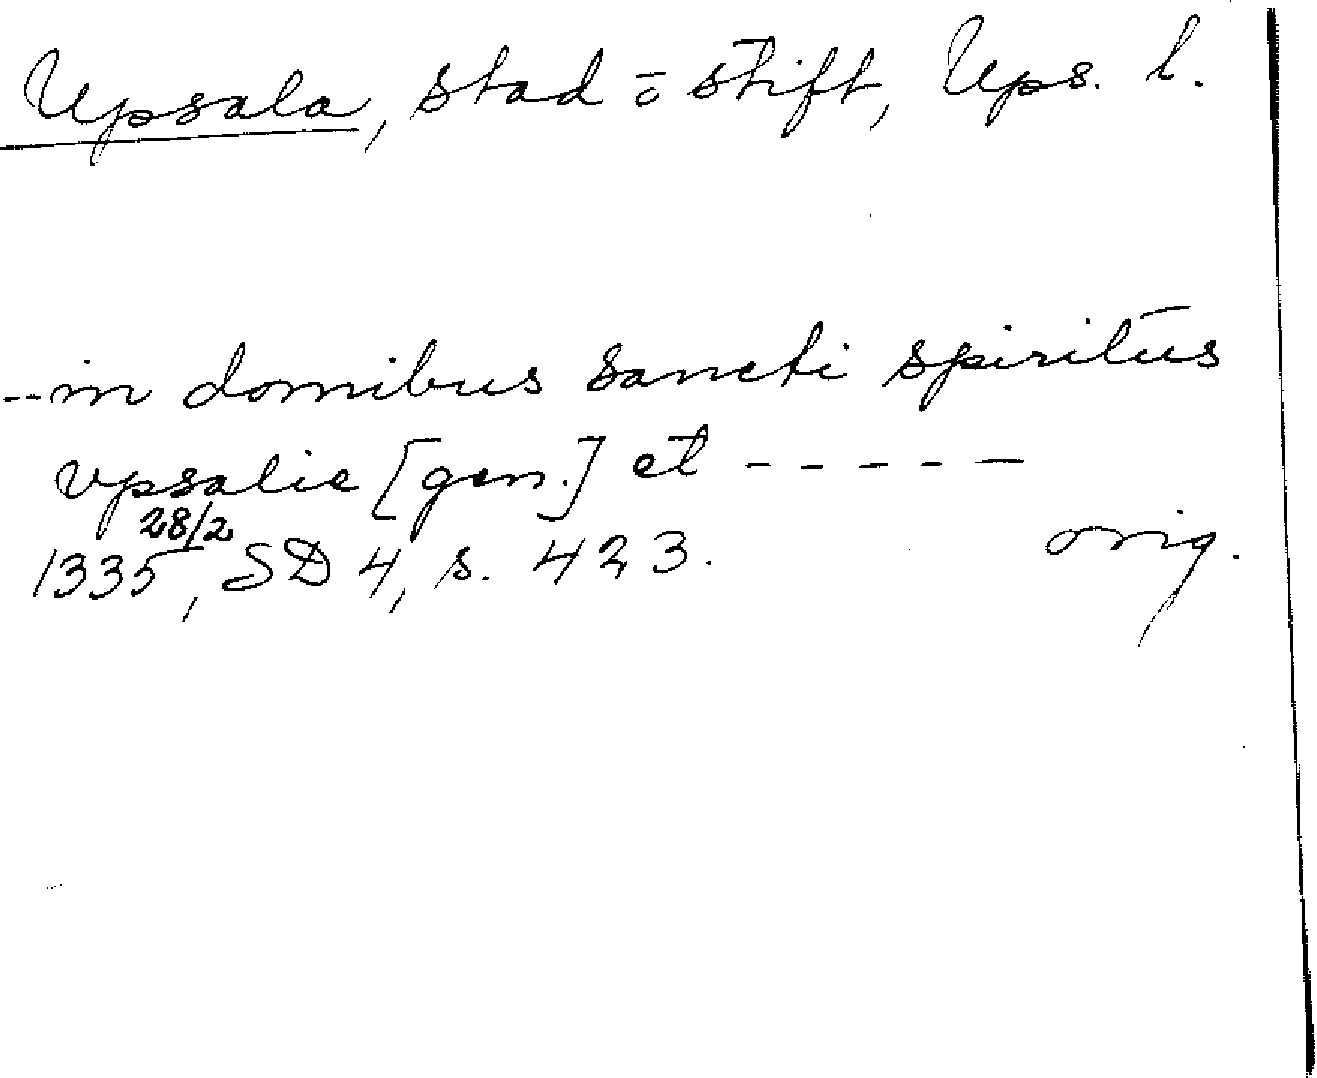 Upsala, stad o stift, Ups. l.
--in domibus sancti spiritus
vpsalie [gen.] et - - - - -
28/2
1335, SD 4, s. 423. orig.